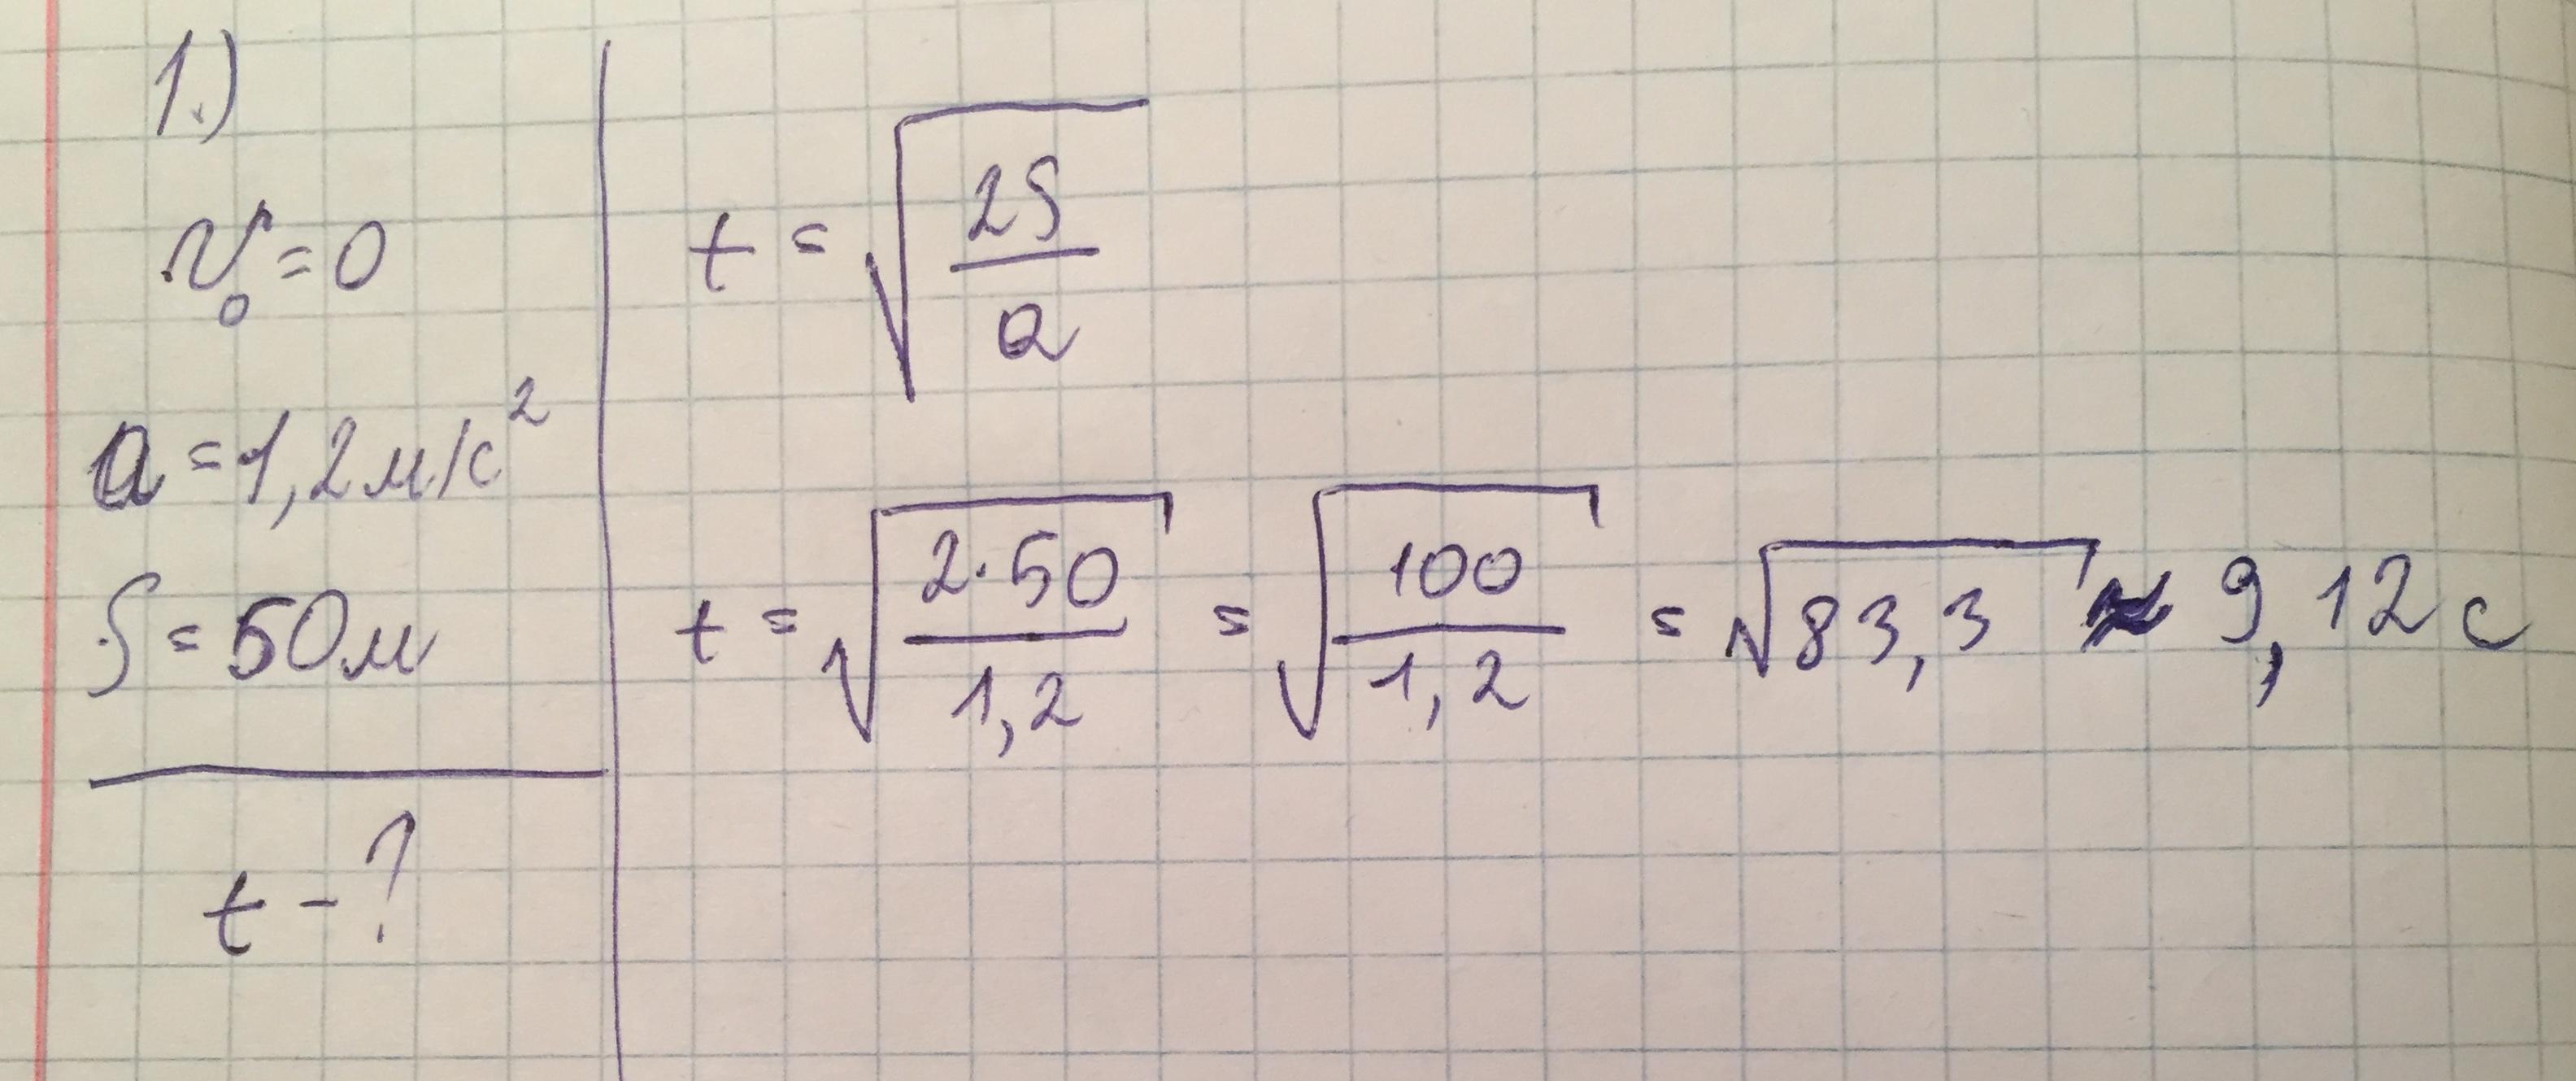 1.)
v₀ = 0
a = 1,2 м/с²
S = 50 м
t - ?
t = √(2S/a)
t = √(2·50/1,2) = √(100/1,2) = √83,3 ≈ 9,12 с